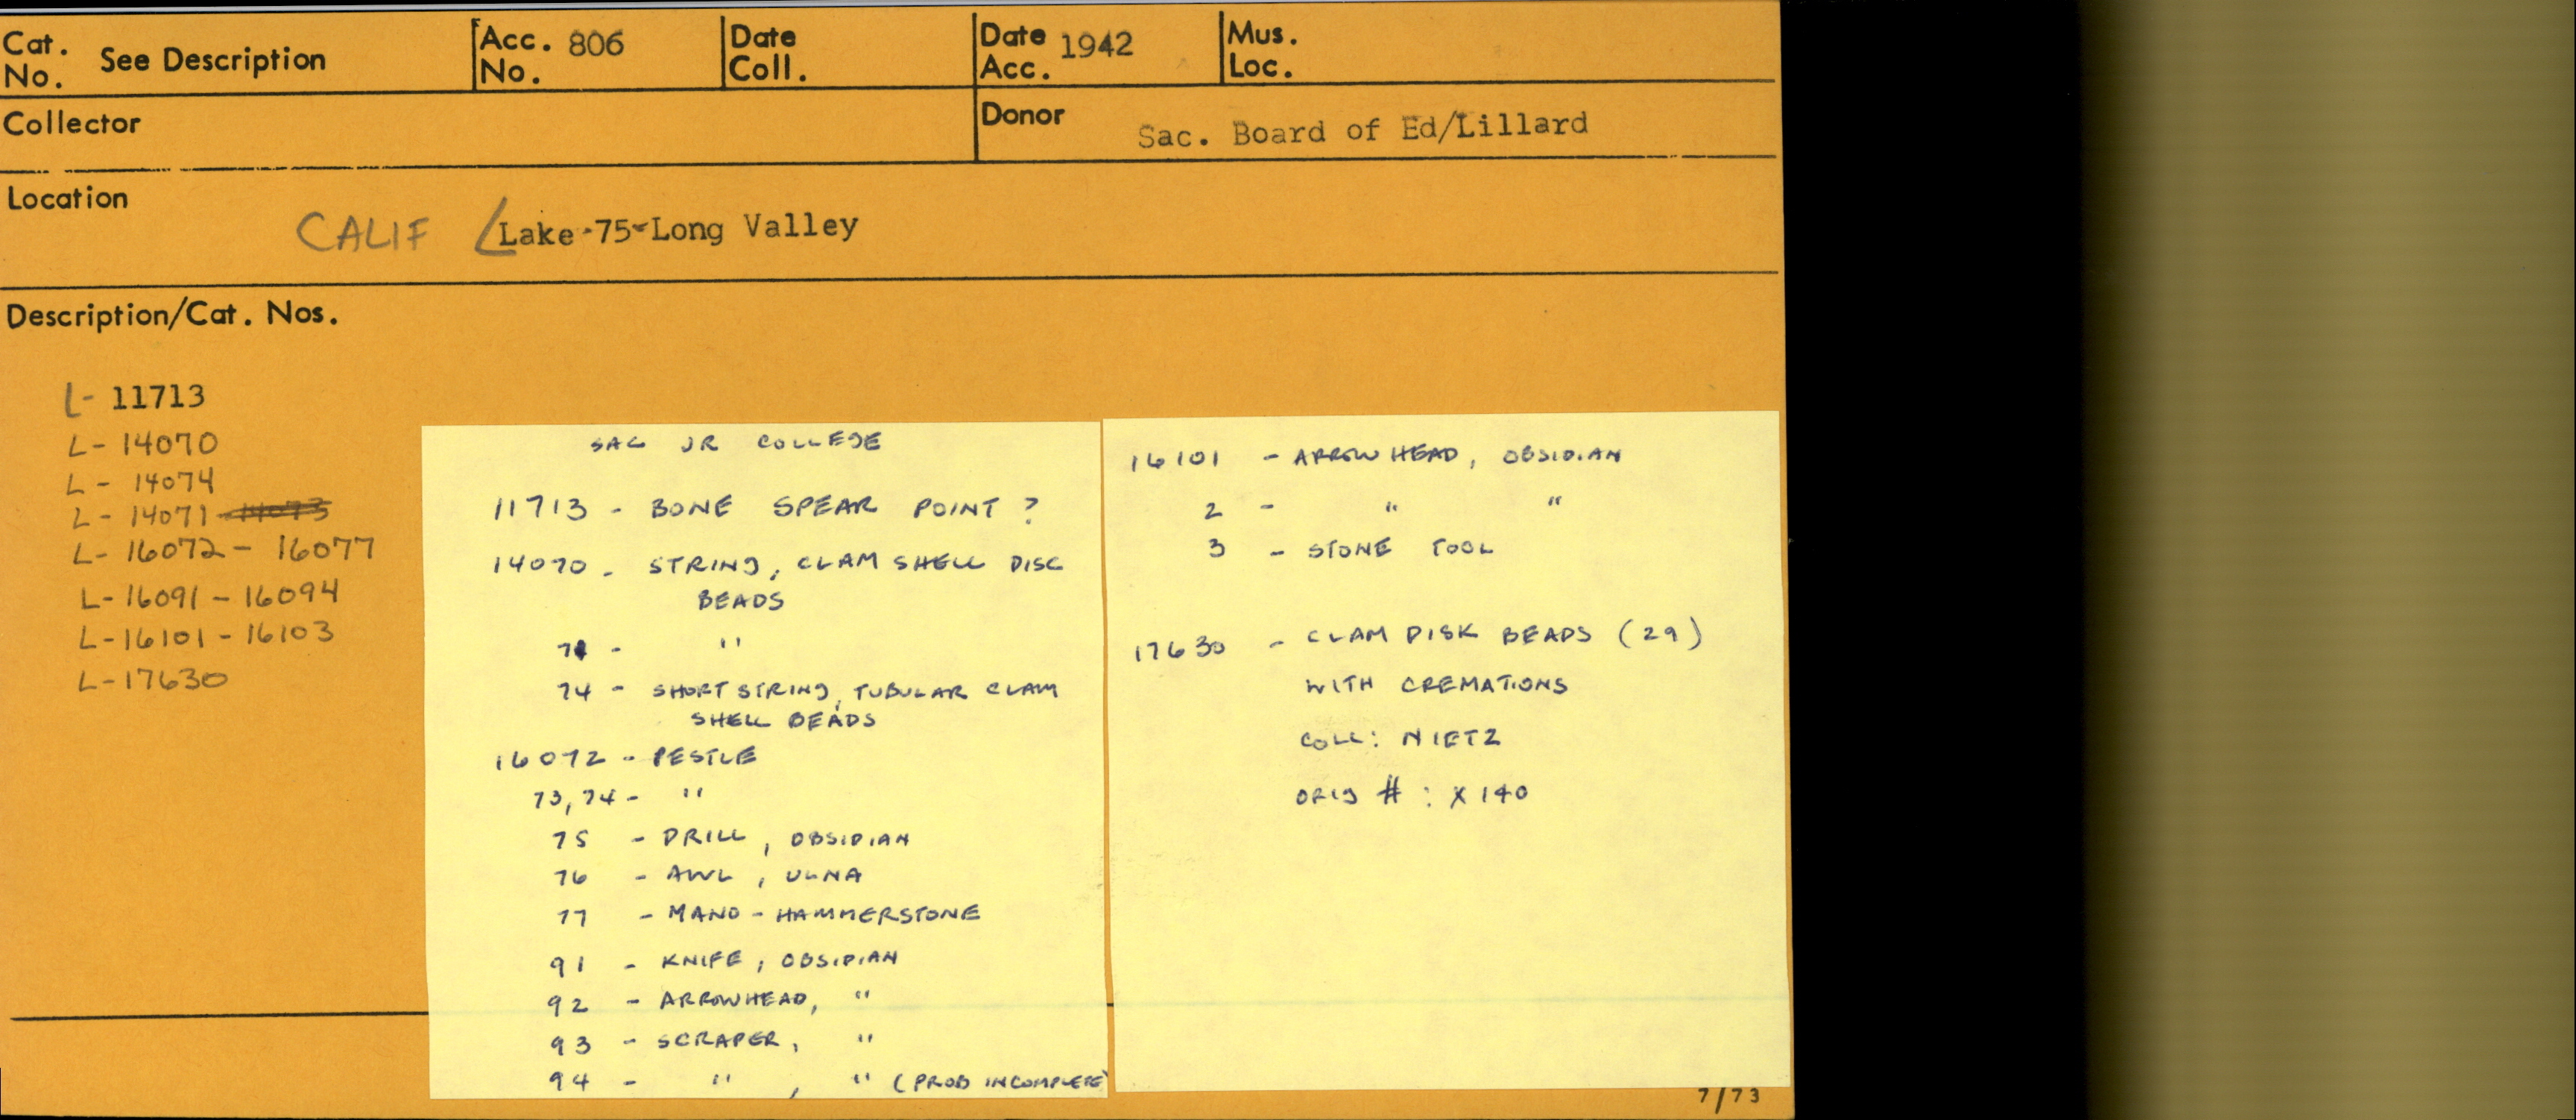 Cat. No. See Description Acc. No. 806 Date Coll. Date Acc. 1942 Mus. Loc.
Collector Donor Sac. Board of Ed/Lillard
Location
CALIF / Lake-75-Long Valley
Description/Cat. Nos.
L- 11713
L- 14070
L- 14074
L- 14071 -14073
L- 16072 - 16077
L- 16091 - 16094
L-16101 - 16103
L-17630
SAC JR COLLEGE
11713 - BONE SPEAR POINT ?
14070 - STRING, CLAM SHELL DISC
BEADS
71 - "
74 - SHORT STRING, TUBULAR CLAM
SHELL BEADS
16072 - PESTLE
73, 74 - "
75 - DRILL, OBSIDIAN
76 - AWL, ULNA
77 - MANO - HAMMERSTONE
91 - KNIFE, OBSIDIAN
92 - ARROWHEAD, "
93 - SCRAPER, "
94 - " , " (PROB INCOMPLETE)
16101 - ARROW HEAD, OBSIDIAN
2 - " "
3 - STONE TOOL
17630 - CLAM DISK BEADS (29)
WITH CREMATIONS
COLL: NIETZ
ORIG # : X140
7/73